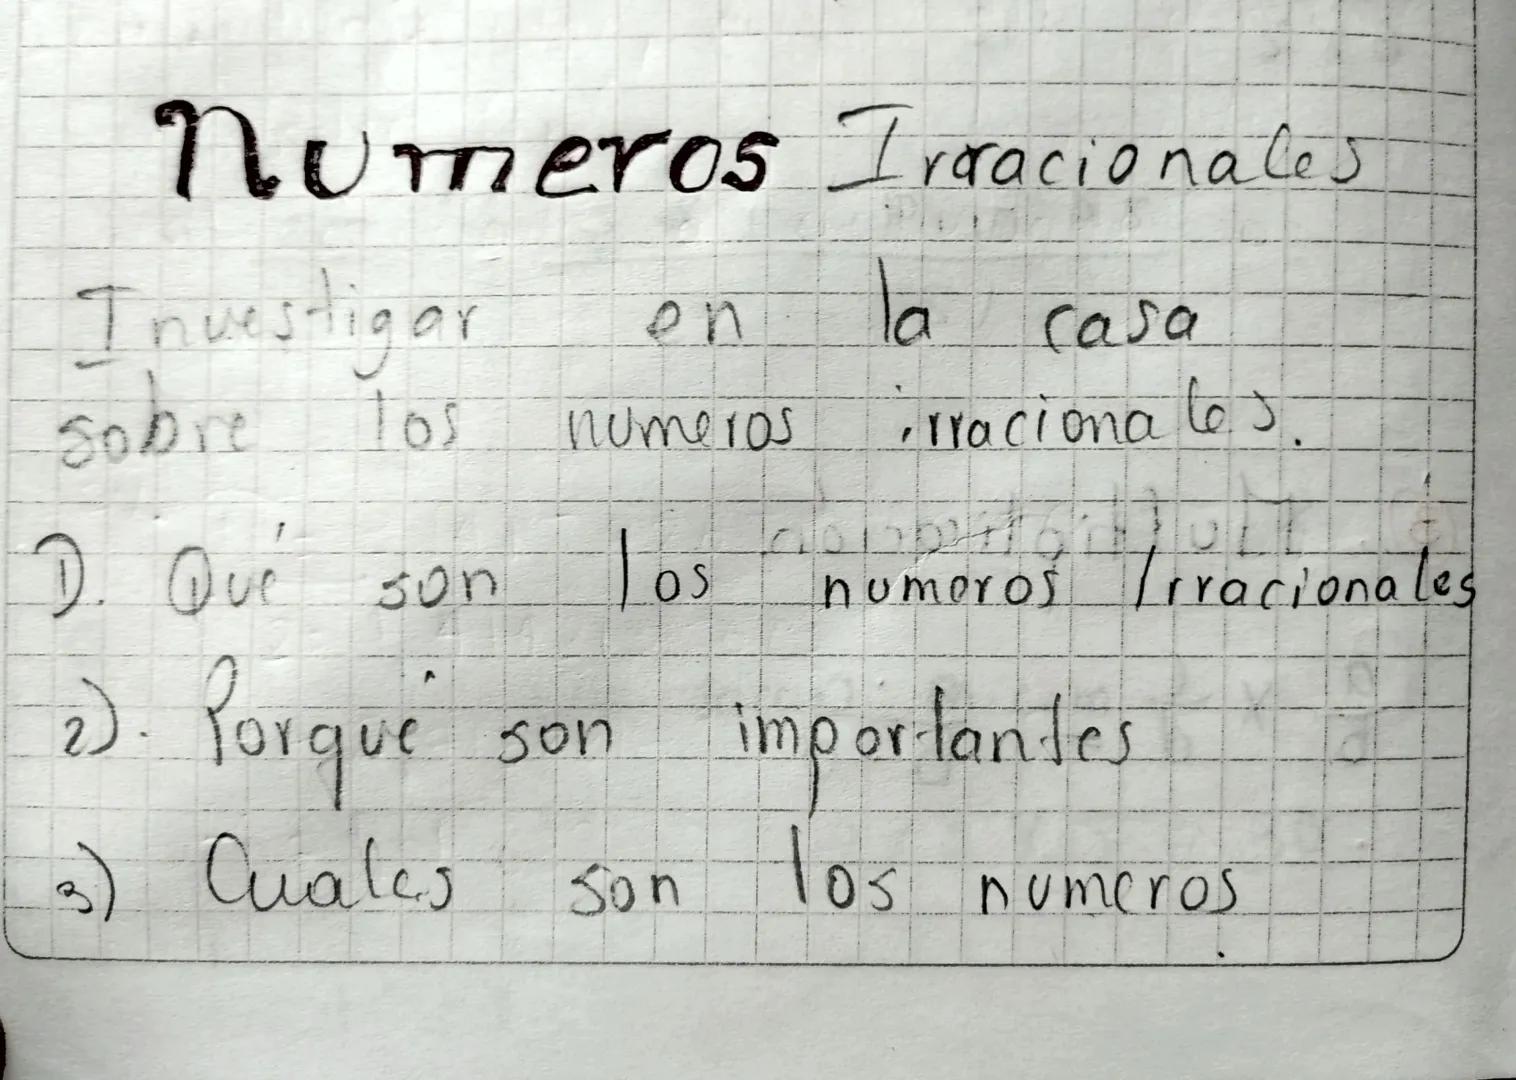 Numeros Irracionales
Investigar en la casa
sobre los numeros irracionales.
1). Qué son los numeros Irracionales
2). Porqué son importantes
3) Cuales son los numeros